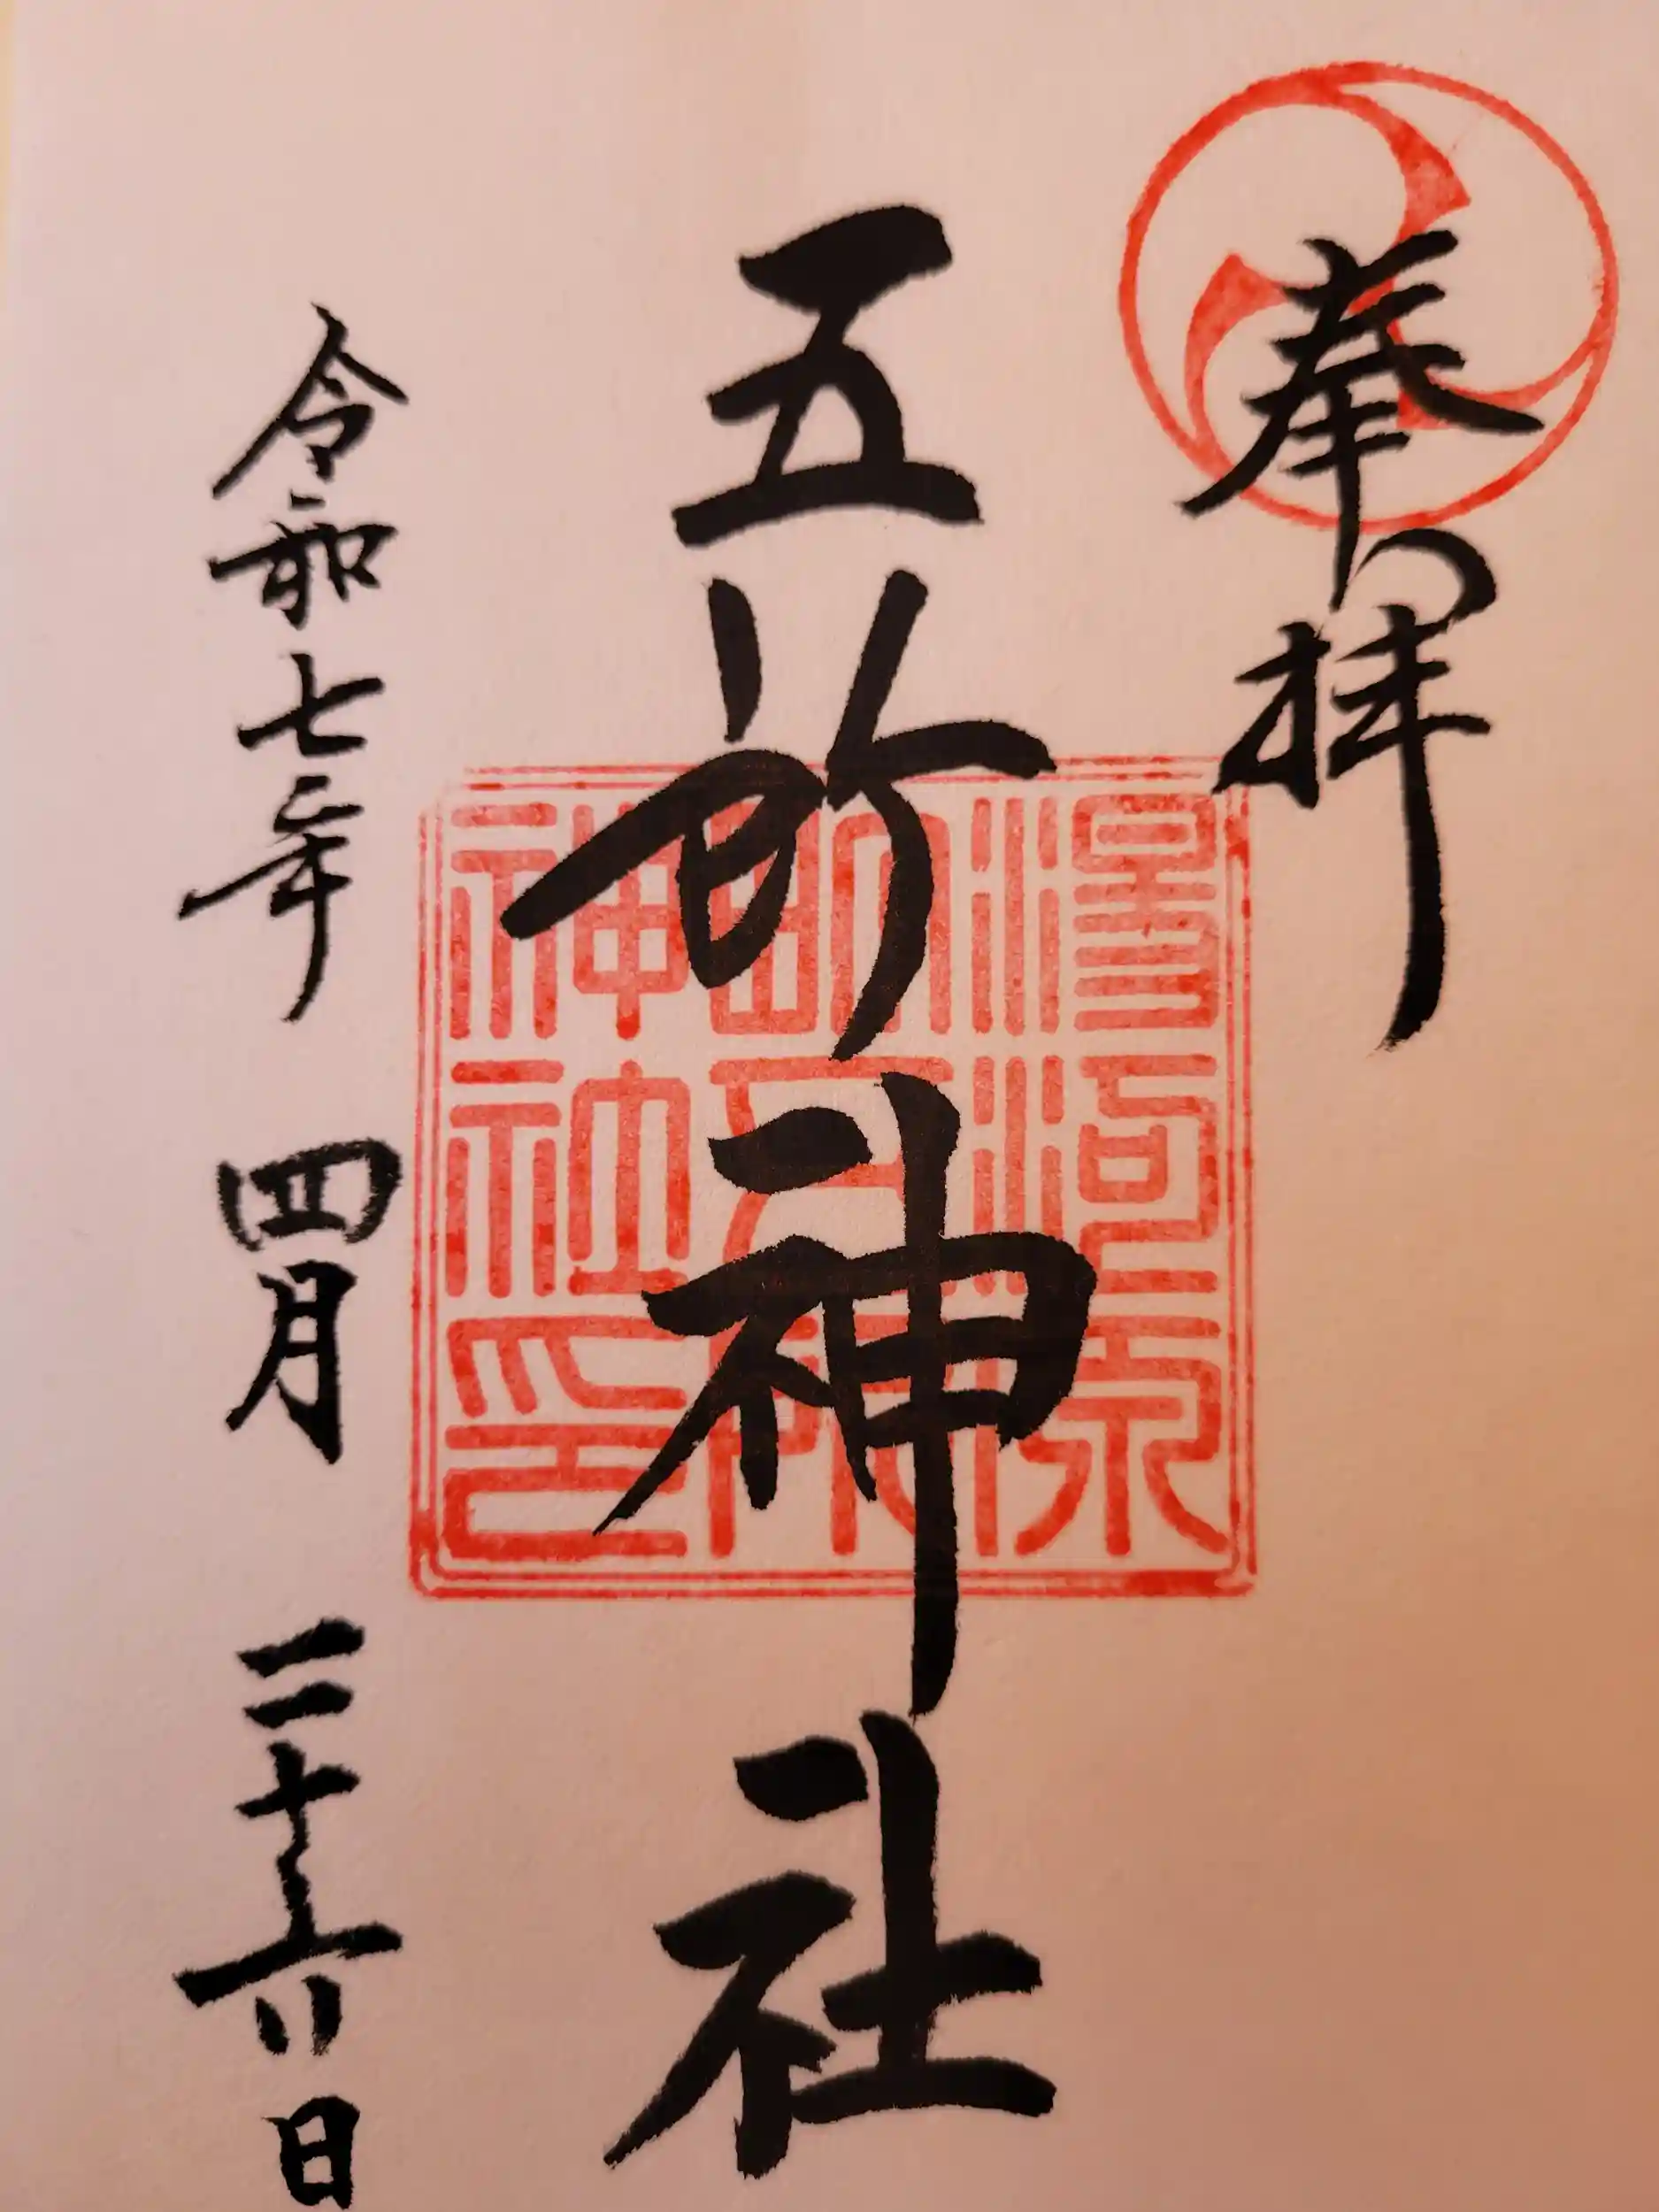 奉拝
五所神社
令和七年 四月 二十六日
湯河原
五所
神社印